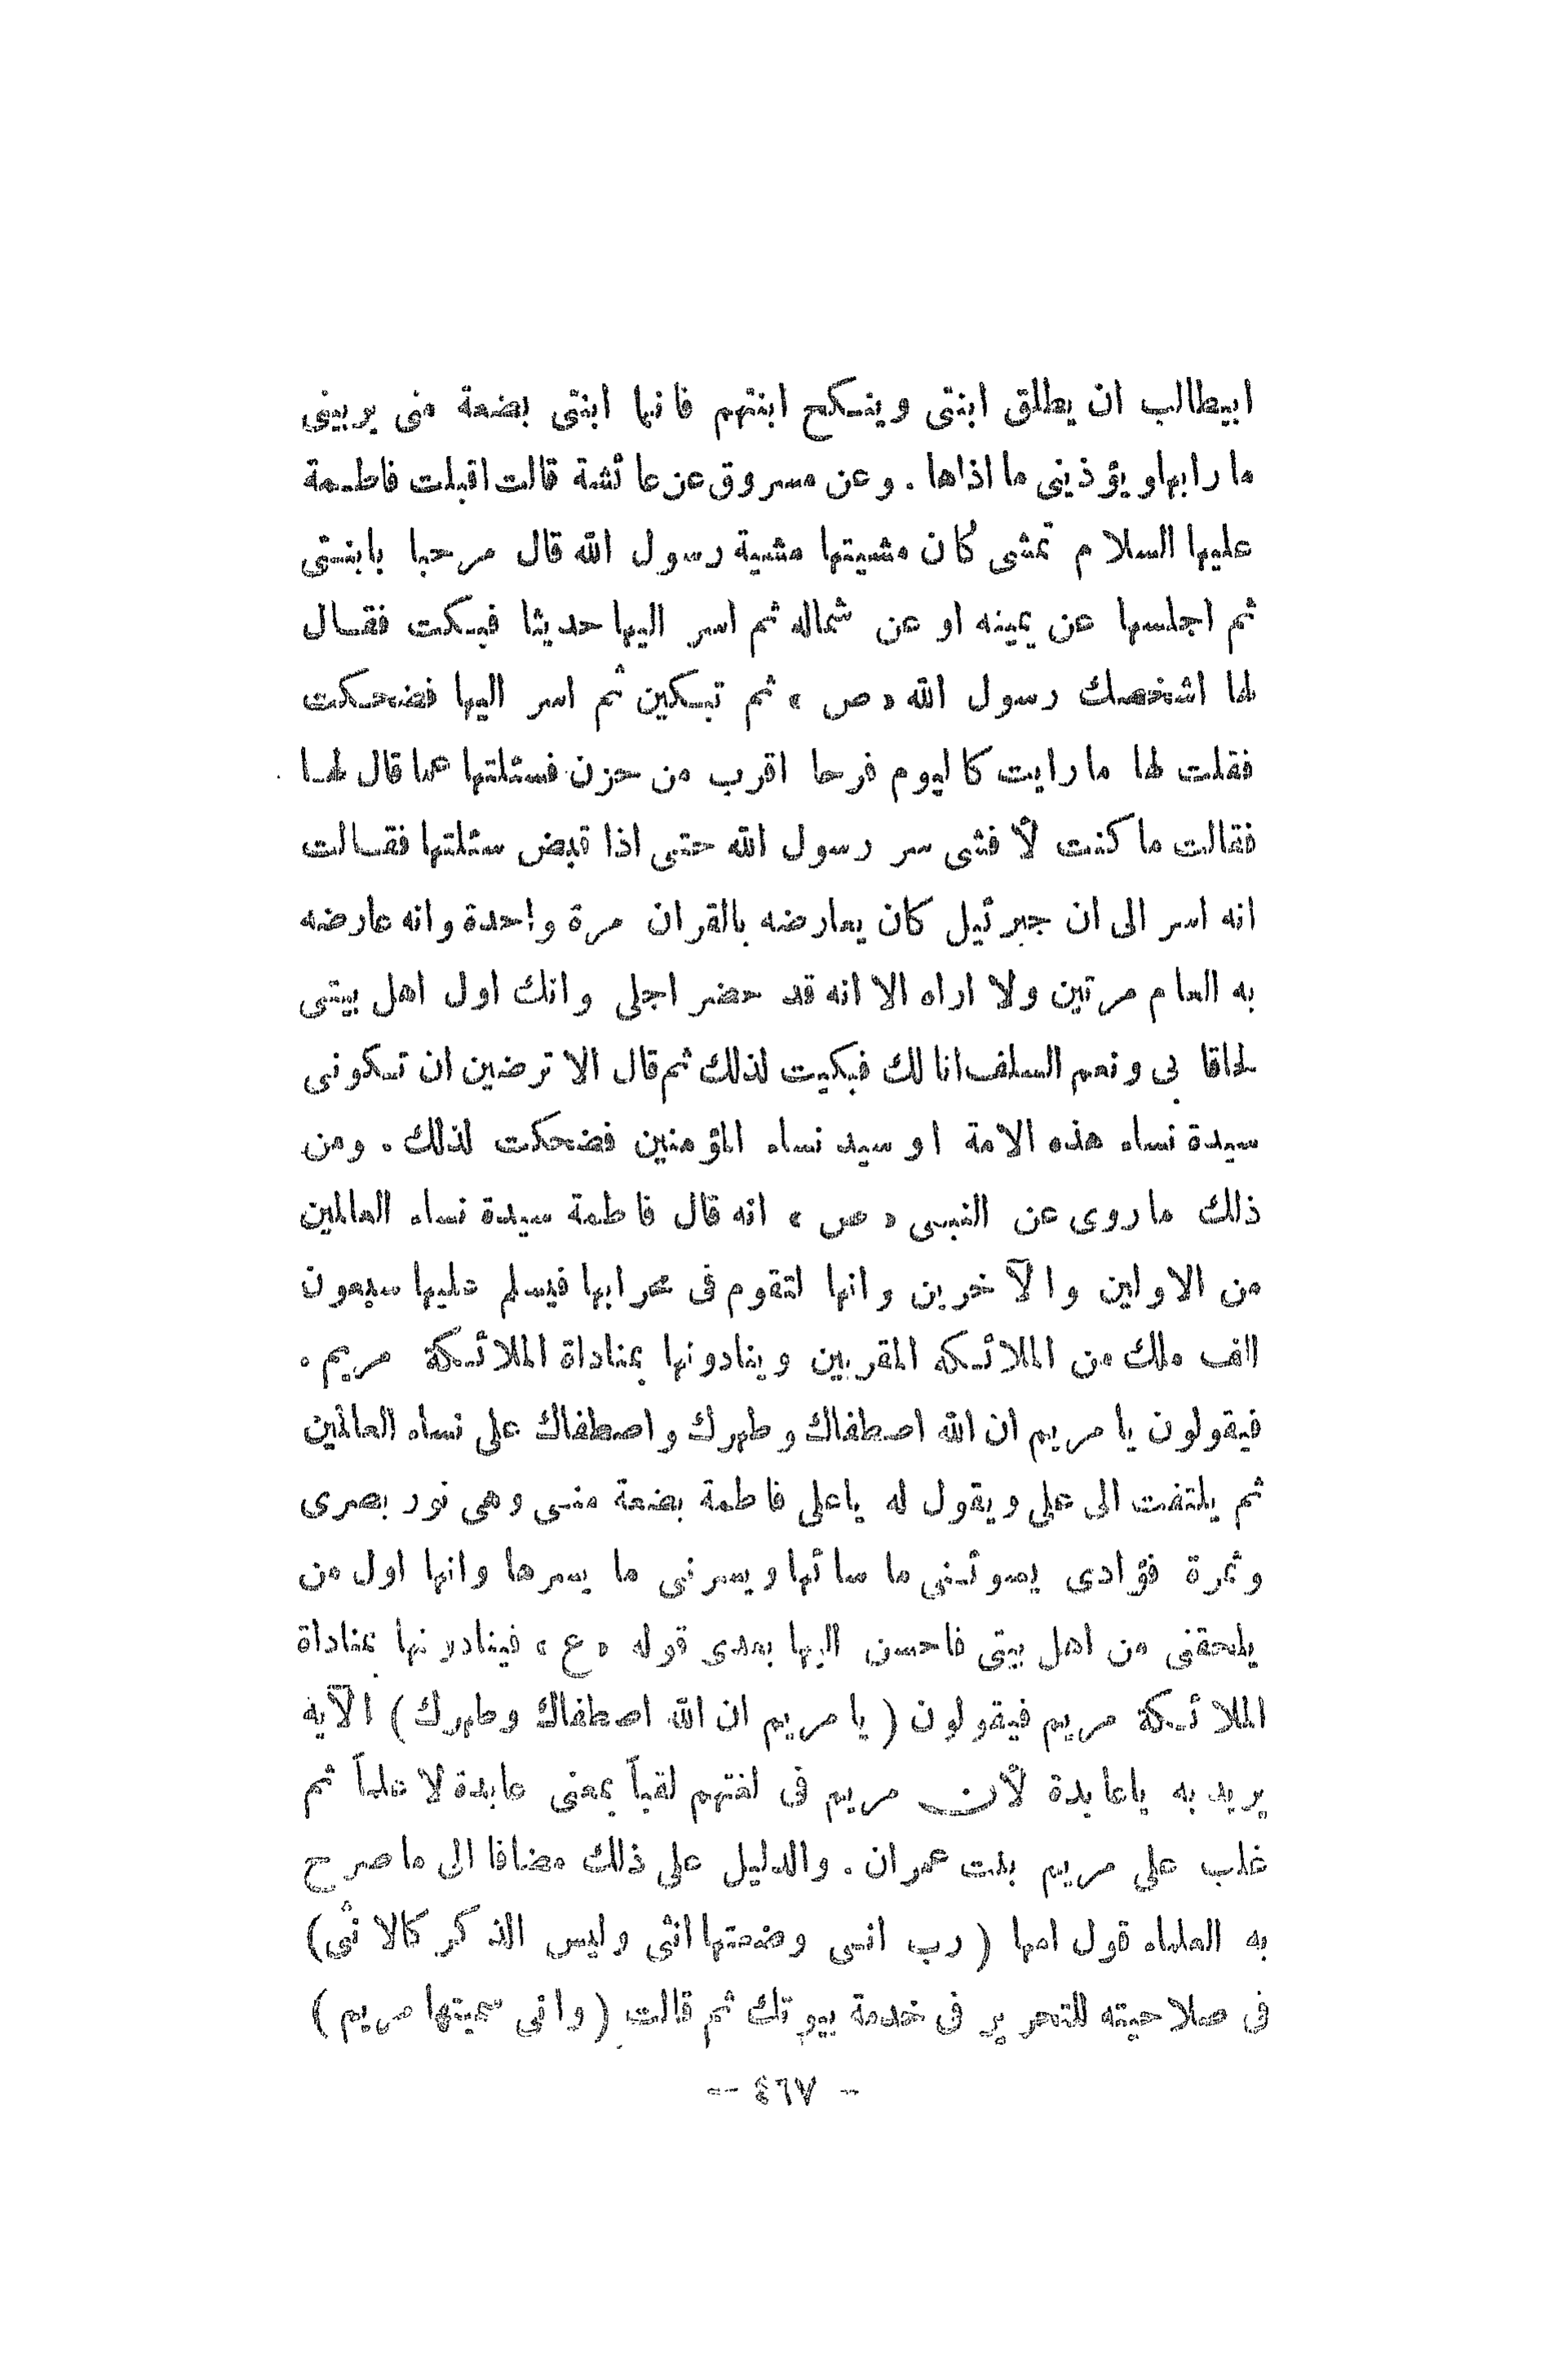 ابيطالب ان يطلق ابنتى وينكح ابنتهم فانها ابنتى بضعة منى يريبنى
ما رابها ويؤذينى ما اذاها . وعن مسروق عن عائشة قالت اقبلت فاطمة
عليها السلام تمشى كان مشيتها مشية رسول الله قال مرحبا بابنتى
ثم اجلسها عن يمينه او عن شماله ثم اسر اليها حديثا فبكت فقال
لها اشخصك رسول الله « ص » ثم تبكين ثم اسر اليها فضحكت
فقلت لها ما رايت كاليوم فرحا اقرب من حزن فسئلتها عما قال لها
فقالت ما كنت لأفشى سر رسول الله حتى اذا قبض سئلتها فقالت
انه اسر الى ان جبرئيل كان يعارضه بالقران مرة واحدة وانه عارضه
به العام مرتين ولا اراه الا انه قد حضر اجلى وانك اول اهل بيتى
لحاقا بى ونعم السلف انا لك فبكيت لذلك ثم قال الا ترضين ان تكونى
سيدة نساء هذه الامة او سيد نساء المؤمنين فضحكت لذلك . ومن
ذلك ما روى عن النبى « ص » انه قال فاطمة سيدة نساء العالمين
من الاولين والآخرين وانها لتقوم فى محرابها فيسلم عليها سبعون
الف ملك من الملائكه المقربين وينادونها بمناداة الملائكة مريم .
فيقولون يا مريم ان الله اصطفاك وطهرك واصطفاك على نساء العالمين
ثم يلتفت الى على ويقول له ياعلى فاطمة بضعة منى وهى نور بصرى
وثمرة فؤادى يسوئنى ما سائها ويسرنى ما يسرها وانها اول من
يلحقنى من اهل بيتى فاحسن اليها بعدى قوله « ع » فينادونها بمناداة
الملائكة مريم فيقولون ( يا مريم ان الله اصطفاك وطهرك ) الآيه
يريد به ياعابدة لأن مريم فى لغتهم لقباً بمعنى عابدة لا علماً ثم
غلب على مريم بنت عمران . والدليل على ذلك مضافا الى ما صرح
به العلماء قول امها ( رب انى وضعتها انثى وليس الذكر كالانثى )
فى صلاحيته للتحرير فى خدمة بيوتك ثم قالت ( وانى سميتها مريم )
- ٤٦٧ -